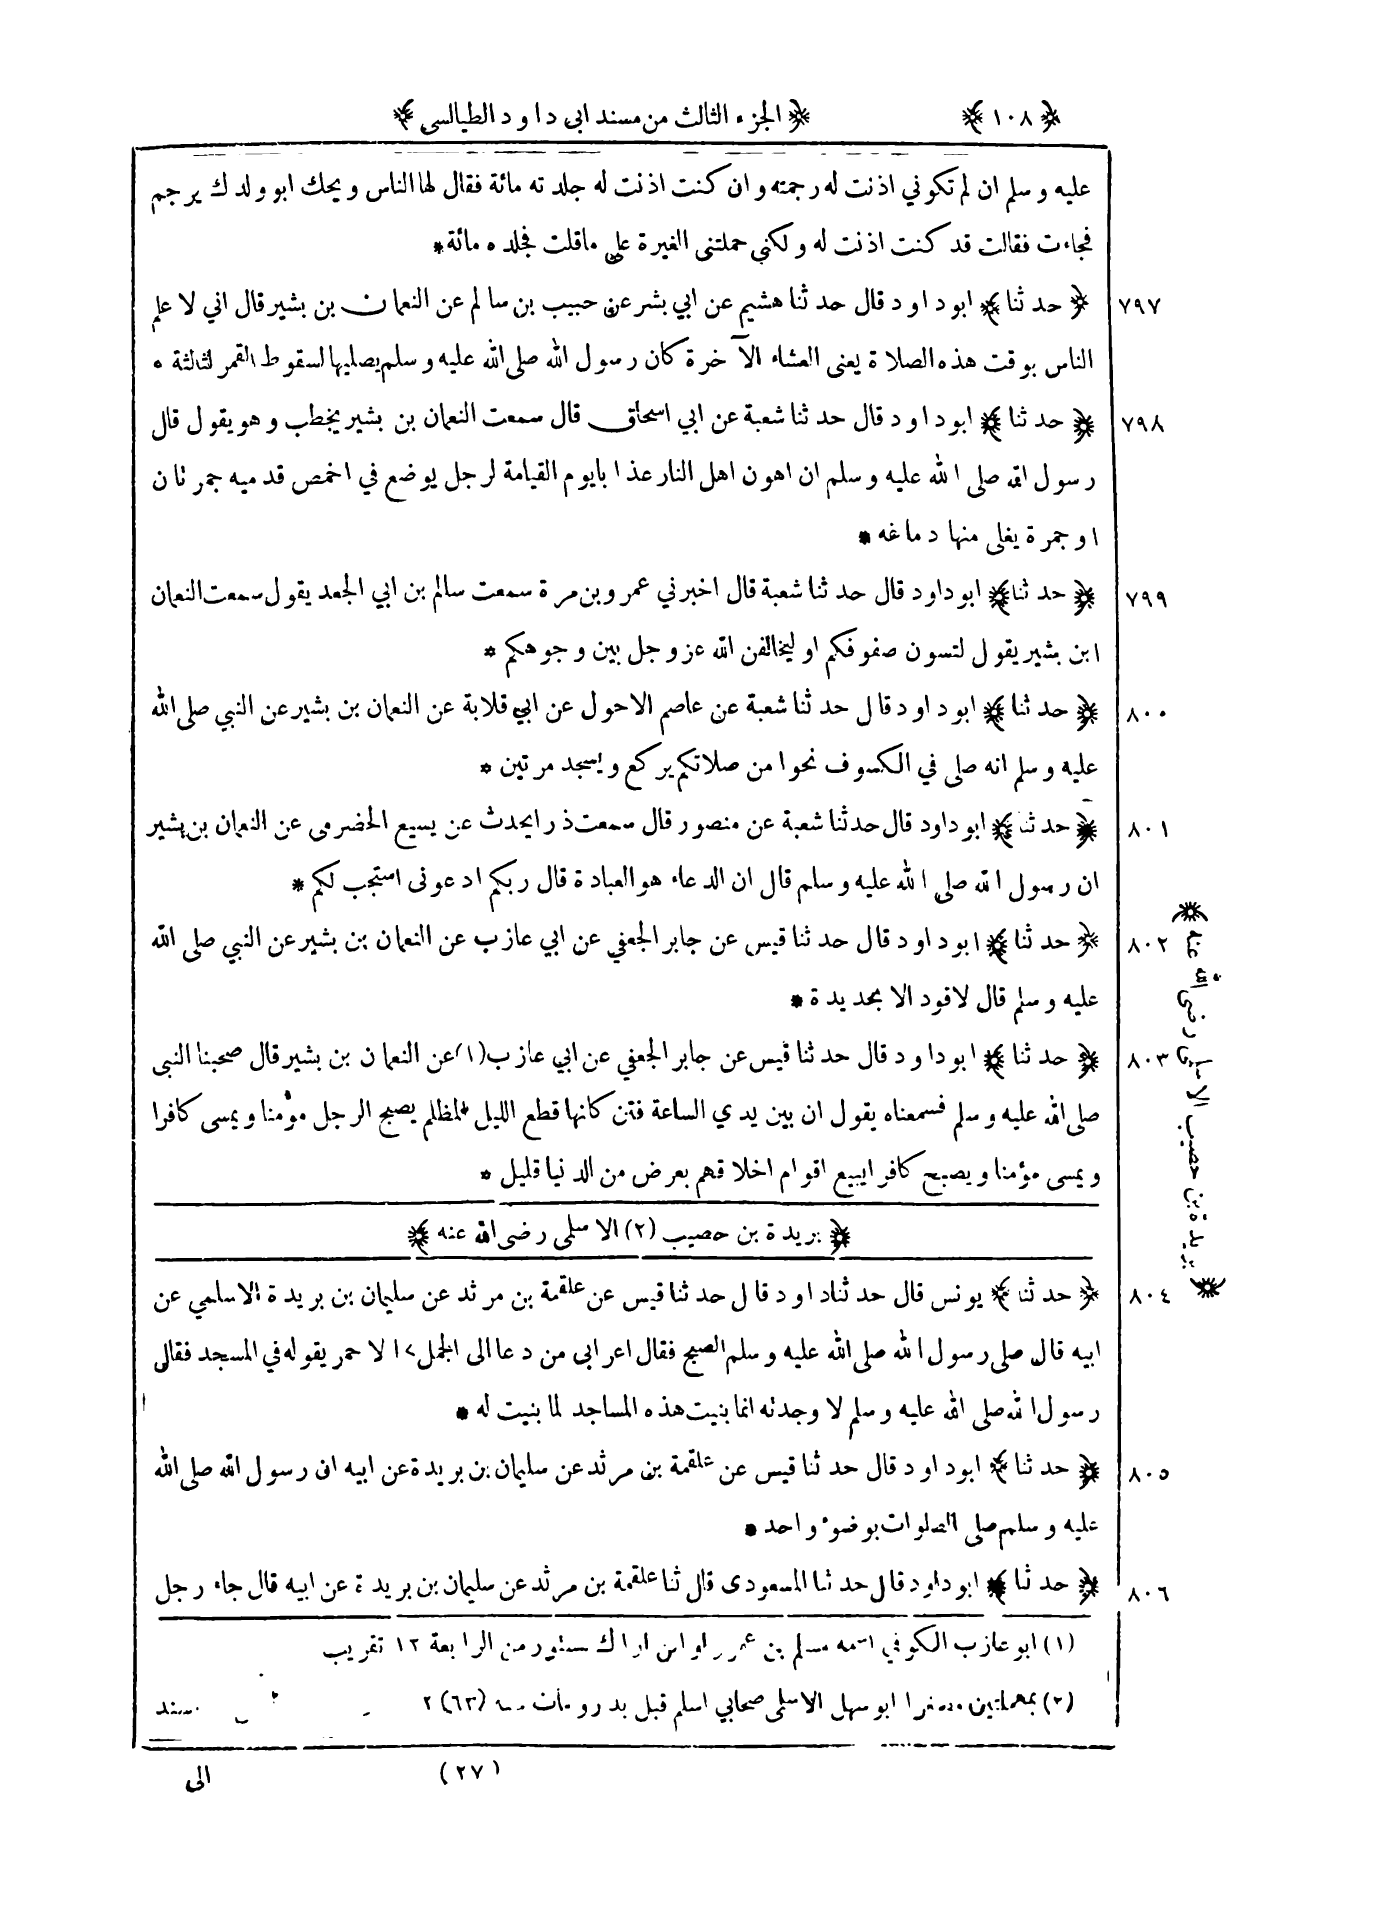 ﴿ ١٠٨ ﴾ ﴿ الجزء الثالث من مسند ابى داود الطيالسى ﴾
عليه وسلم ان لم تكوني اذنت له رجمته وان كنت اذنت له جلدته مائة فقال لها الناس ويحك ابو ولدك يرجم
فجاءت فقالت قد كنت اذنت له ولكنى حملتنى الغيرة على ماقلت فجلده مائة *
٧٩٧ ﴿ حدثنا ﴾ ابوداود قال حدثنا هشيم عن ابي بشر عن حبيب بن سالم عن النعمان بن بشير قال اني لاعلم
الناس بوقت هذه الصلاة يعنى العشاء الآخرة كان رسول الله صلى الله عليه وسلم يصليها لسقوط القمر لثالثة ٥
٧٩٨ ﴿ حدثنا ﴾ ابوداود قال حدثنا شعبة عن ابي اسحاق قال سمعت النعمان بن بشير يخطب وهو يقول قال
رسول الله صلى الله عليه وسلم ان اهون اهل النار عذابا يوم القيامة لرجل يوضع في اخمص قدميه جمرتان
او جمرة يغلى منها دماغه *
٧٩٩ ﴿ حدثنا ﴾ ابوداود قال حدثنا شعبة قال اخبرني عمرو بن مرة سمعت سالم بن ابي الجعد يقول سمعت النعمان
ابن بشير يقول لتسون صفوفكم او ليخالفن الله عزوجل بين وجوهكم *
٨٠٠ ﴿ حدثنا ﴾ ابوداود قال حدثنا شعبة عن عاصم الاحول عن ابي قلابة عن النعمان بن بشير عن النبي صلى الله
عليه وسلم انه صلى في الكسوف نحوا من صلاتكم يركع ويسجد مرتين *
٨٠١ ﴿ حدثنا ﴾ ابوداود قال حدثنا شعبة عن منصور قال سمعت ذرا يحدث عن يسيع الحضرمى عن النعمان بن بشير
ان رسول الله صلى الله عليه وسلم قال ان الدعاء هو العبادة قال ربكم ادعونى استجب لكم *
٨٠٢ ﴿ حدثنا ﴾ ابوداود قال حدثنا قيس عن جابر الجعفي عن ابي عازب عن النعمان بن بشير عن النبي صلى الله
عليه وسلم قال لاقود الا بحديدة *
٨٠٣ ﴿ حدثنا ﴾ ابوداود قال حدثنا قيس عن جابر الجعفي عن ابي عازب (١) عن النعمان بن بشير قال صحبنا النبى
صلى الله عليه وسلم فسمعناه يقول ان بين يدي الساعة فتن كانها قطع الليل المظلم يصبح الرجل مؤمنا ويمسى كافرا
ويمسى مؤمنا ويصبح كافرا يبيع اقوام اخلاقهم بعرض من الدنيا قليل *
﴿ بريدة بن حصيب (٢) الاسلمى رضى الله عنه ﴾
﴿ بريدة بن حصيب الاسلمى رضى الله عنه ﴾
٨٠٤ ﴿ حدثنا ﴾ يونس قال حدثنا داود قال حدثنا قيس عن علقمة بن مرثد عن سليمان بن بريدة الاسلمي عن
ابيه قال صلى رسول الله صلى الله عليه وسلم الصبح فقال اعرابى من دعا الى الجمل الاحمر يقوله في المسجد فقال
رسول الله صلى الله عليه وسلم لا وجدته انما بنيت هذه المساجد لما بنيت له *
٨٠٥ ﴿ حدثنا ﴾ ابوداود قال حدثنا قيس عن علقمة بن مرثد عن سليمان بن بريدة عن ابيه ان رسول الله صلى الله
عليه وسلم صلى الصلوات بوضوء واحد *
٨٠٦ ﴿ حدثنا ﴾ ابوداود قال حدثنا المسعودى قال ثنا علقمة بن مرثد عن سليمان بن بريدة عن ابيه قال جاء رجل
(١) ابو عازب الكوفي اسمه مسلم بن عمرو او ابن اراك مستور من الرابعة ١٢ تقريب
(٢) بمهملتين مصغرا ابو سهل الاسلمى صحابي اسلم قبل بدر ومات سنة (٦٣) ٢
(٢٧) الى